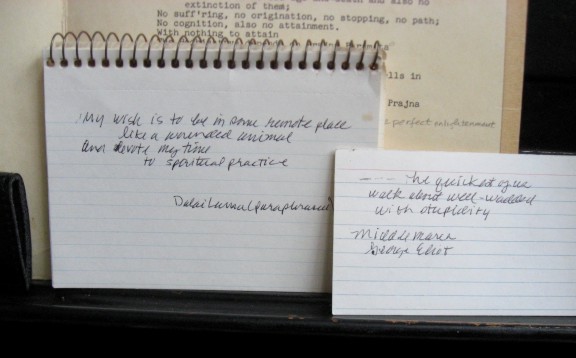 extinction of them;
No suff'ring, no origination, no stopping, no path;
No cognition, also no attainment.
With nothing to attain
lls in
Prajna
a perfect enlightenment
My wish is to be in some remote place
like a wounded animal
and devote my time
to spiritual practice
Dalai Lama (paraphrased)
---- the quickest of us
walk about well-wadded
with stupidity
Middlemarch
George Eliot